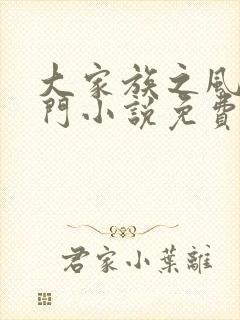 大家族之風
門小說免費
君家小葉離